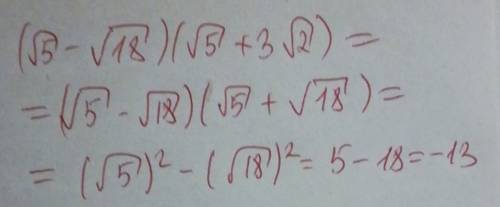 (√5 - √18)(√5 + 3√2) =
= (√5 - √18)(√5 + √18) =
= (√5)² - (√18)² = 5 - 18 = -13